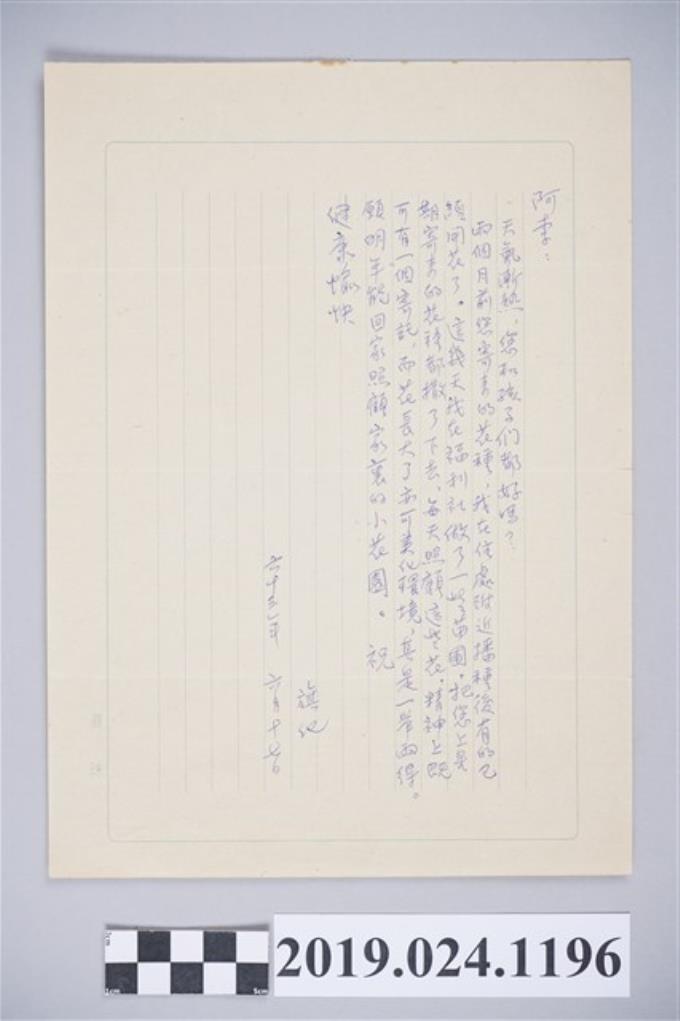 阿李：
天氣漸熱，您和孩子們都好嗎？
兩個月前您寄來的花種，我在住處附近播種後有的已
經開花了。這幾天我在福利社做了一些苗圃，把您上星
期寄來的花種都撒了下去，每天照顧這些花，精神上既
可有一個寄託，而花長大了亦可美化環境，真是一舉兩得。
願明年能回家照顧家裏的小花園。 祝
健康愉快
旗化
六十三年 六月十七日
1cm
5cm
2019.024.1196